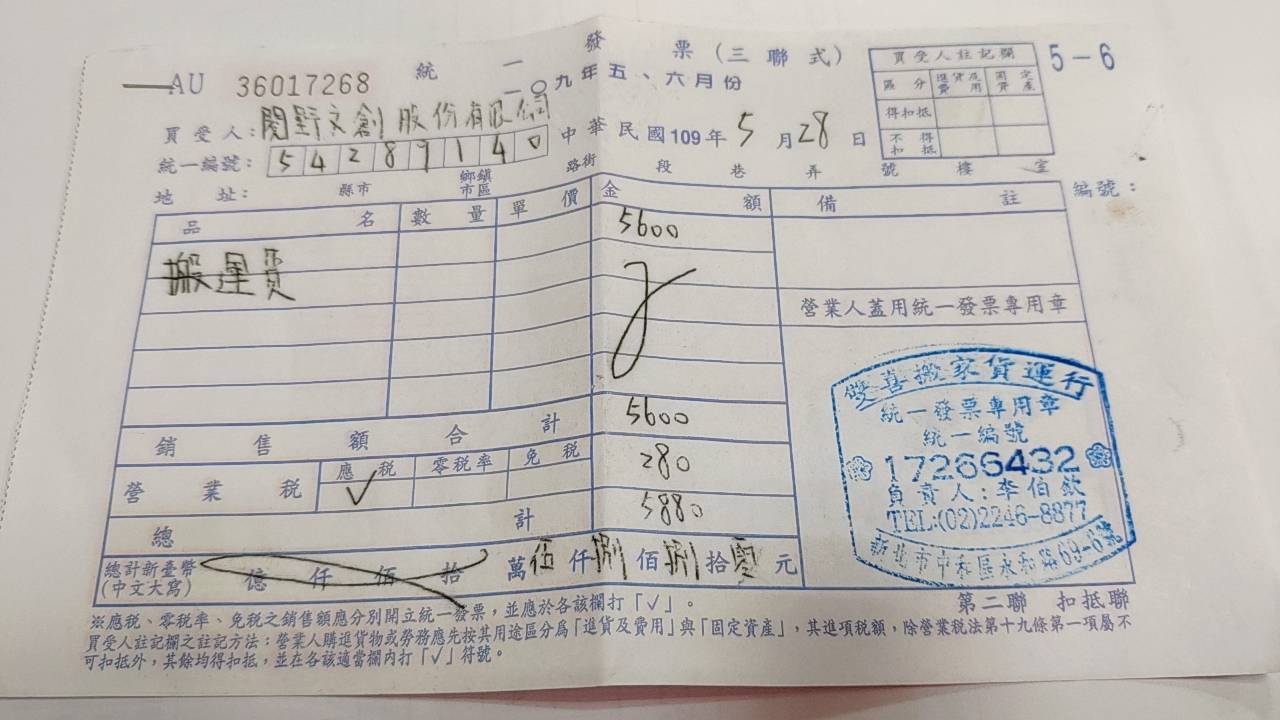 統一發票(三聯式)
AU 36017268
一〇九年五、六月份
5-6
買受人註記欄
區分 進貨及費用 固定資產
得扣抵
不得扣抵
買受人:閱野文創股份有限公司
統一編號:54289140
中華民國109年5月28日
地址: 縣市 鄉鎮市區 路街 段 巷 弄 號 樓 室
編號:
品名 數量 單價 金額 備註
搬運費 5600
營業人蓋用統一發票專用章
銷售額合計 5600
營業稅 應稅 零稅率 免稅 280
✓
總計 5880
總計新臺幣(中文大寫) 億 仟 佰 拾 萬 伍 仟 捌 佰 捌 拾 零 元
雙喜搬家貨運行
統一發票專用章
統一編號
17266432
負責人:李伯欽
TEL:(02)2246-8877
新北市中和區永和路69-6號
※應稅、零稅率、免稅之銷售額應分別開立統一發票,並應於各該欄打「✓」。
第二聯 扣抵聯
買受人註記欄之註記方法:營業人購進貨物或勞務應先按其用途區分為「進貨及費用」與「固定資產」,其進項稅額,除營業稅法第十九條第一項屬不
可扣抵外,其餘均得扣抵,並在各該適當欄內打「✓」符號。